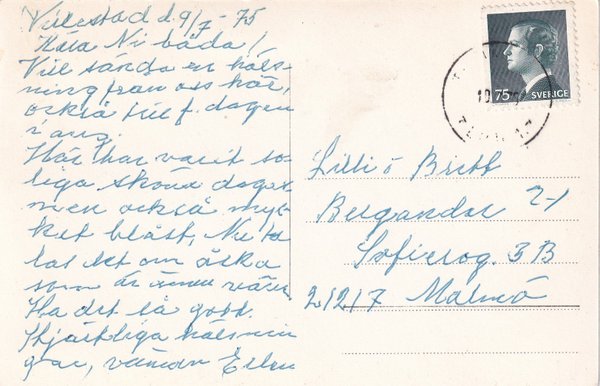 d. 9/7 - 75
Kära Ni båda!
Vill sända en häls-
ning från oss här,
också till f. dagen
Här har varit so-
liga sköna dagar
men också myc-
ket blåst, Nu ta
las det om åska
som
Ha det så gott.
Hjärtliga hälsnin
gar, vännen Ellen
Lilli o Britt
Bergander
Sofierog. 3B
21217 Malmö
75 SVERIGE